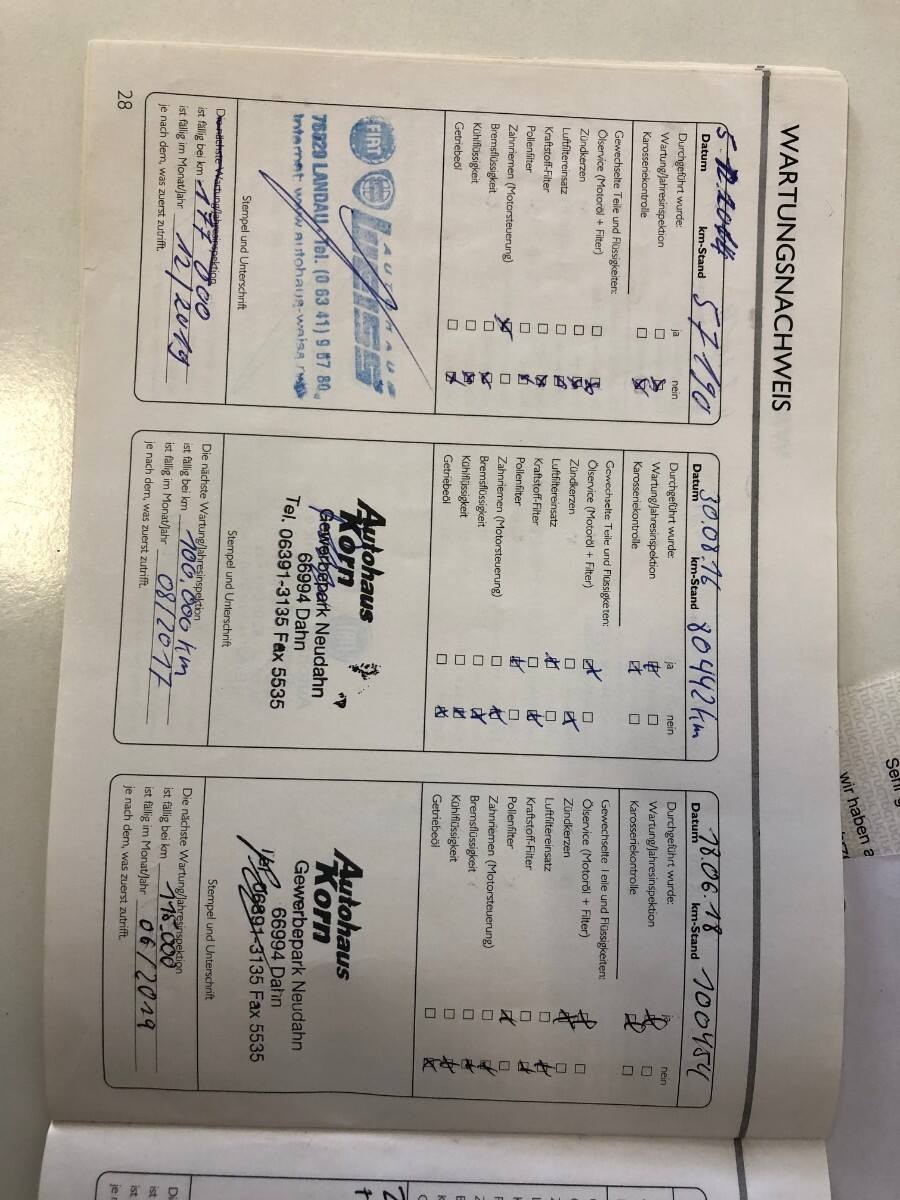 WARTUNGSNACHWEIS
Datum 5.12.2014 km-Stand 57190
Durchgeführt wurde: ja nein
Wartung/Jahresinspektion
Karosseriekontrolle
Gewechselte Teile und Flüssigkeiten:
Ölservice (Motoröl + Filter)
Zündkerzen
Luftfiltereinsatz
Kraftstoff-Filter
Pollenfilter
Zahnriemen (Motorsteuerung)
Bremsflüssigkeit
Kühlflüssigkeit
Getriebeöl
FIAT AUTOHAUS
76829 LANDAU, Tel. (0 63 41) 9 67 80
Internet www.autohaus-weiss
Stempel und Unterschrift
Die nächste Wartung/Jahresinspektion
ist fällig bei km 177000
ist fällig im Monat/Jahr 12/2019
je nach dem, was zuerst zutrifft.
Datum 30.08.16 km-Stand 80442 km
Durchgeführt wurde: ja nein
Wartung/Jahresinspektion
Karosseriekontrolle
Gewechselte Teile und Flüssigkeiten:
Ölservice (Motoröl + Filter)
Zündkerzen
Luftfiltereinsatz
Kraftstoff-Filter
Pollenfilter
Zahnriemen (Motorsteuerung)
Bremsflüssigkeit
Kühlflüssigkeit
Getriebeöl
Autohaus
Korn
Gewerbepark Neudahn
66994 Dahn
Tel. 06391-3135 Fax 5535
Stempel und Unterschrift
Die nächste Wartung/Jahresinspektion
ist fällig bei km 100.000 km
ist fällig im Monat/Jahr 08/2017
je nach dem, was zuerst zutrifft.
Datum 18.06.18 km-Stand 100454
Durchgeführt wurde: ja nein
Wartung/Jahresinspektion
Karosseriekontrolle
Gewechselte Teile und Flüssigkeiten:
Ölservice (Motoröl + Filter)
Zündkerzen
Luftfiltereinsatz
Kraftstoff-Filter
Pollenfilter
Zahnriemen (Motorsteuerung)
Bremsflüssigkeit
Kühlflüssigkeit
Getriebeöl
Autohaus
Korn
Gewerbepark Neudahn
66994 Dahn
Tel. 06391-3135 Fax 5535
Stempel und Unterschrift
Die nächste Wartung/Jahresinspektion
ist fällig bei km 118.000
ist fällig im Monat/Jahr 06/2019
je nach dem, was zuerst zutrifft.
28
wir haben a